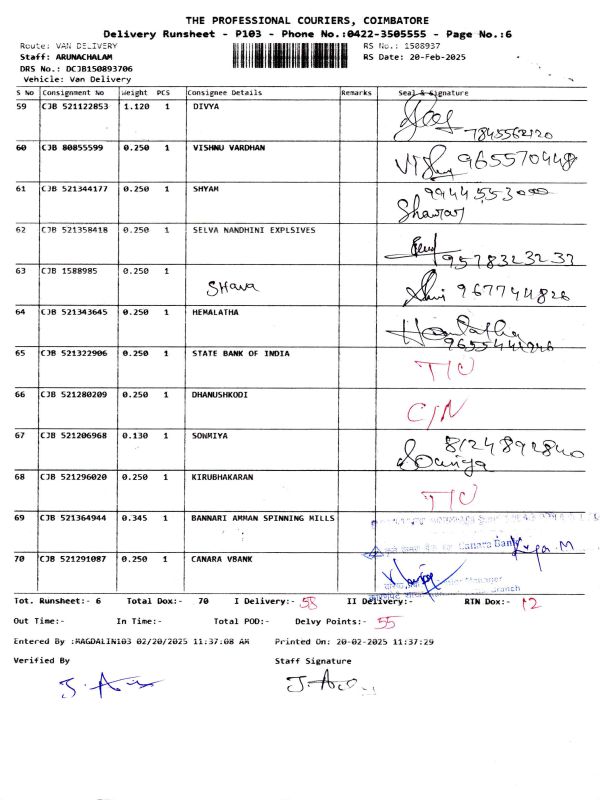 THE PROFESSIONAL COURIERS, COIMBATORE
Delivery Runsheet - P103 - Phone No.:0422-3505555 - Page No.:6
Route: VAN DELIVERY RS No.: 1508937
Staff: ARUNACHALAM RS Date: 20-Feb-2025
DRS No.: DCJB150893706
Vehicle: Van Delivery
S No Consignment No Weight PCS Consignee Details Remarks Seal & Signature
59 CJB 521122853 1.120 1 DIVYA
7845562120
60 CJB 80855599 0.250 1 VISHNU VARDHAN 965570448
61 CJB 521344177 0.250 1 SHYAM 9944553000
62 CJB 521358418 0.250 1 SELVA NANDHINI EXPLSIVES
9578323233
63 CJB 1588985 0.250 1 SHava 967744826
64 CJB 521343645 0.250 1 HEMALATHA Hemlatha
9655441246
65 CJB 521322906 0.250 1 STATE BANK OF INDIA
66 CJB 521280209 0.250 1 DHANUSHKODI C/N
67 CJB 521206968 0.130 1 SOWMIYA 8124892840
68 CJB 521296020 0.250 1 KIRUBHAKARAN
69 CJB 521364944 0.345 1 BANNARI AMMAN SPINNING MILLS
Canara Bank
70 CJB 521291087 0.250 1 CANARA VBANK
Manager
Branch
Tot. Runsheet:- 6 Total Dox:- 70 I Delivery:- 58 II Delivery:- RTN Dox:- 12
Out Time:- In Time:- Total POD:- Delvy Points:- 55
Entered By :MAGDALIN103 02/20/2025 11:37:08 AM Printed On: 20-02-2025 11:37:29
Verified By Staff Signature